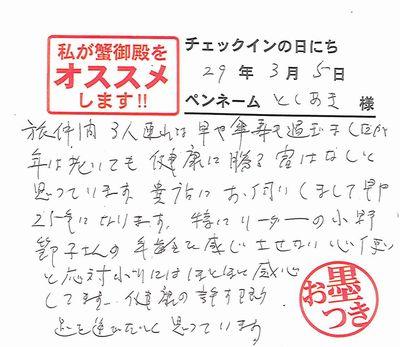 私が蟹御殿を
オススメ
します!!
チェックインの日にち
29年3月5日
ペンネーム としあき 様
旅仲間 3人連れは早や傘寿を過ぎました
年は老いても健康に勝る宝はないと
思っています。貴店にお伺いしまして早や
になります。特にリーダーの小野
節子さんの年齢を感じさせない心使い
と応対ぶりにはほとほと感心
してます。健康の許す限り
足を運びたいと思っています
お墨つき